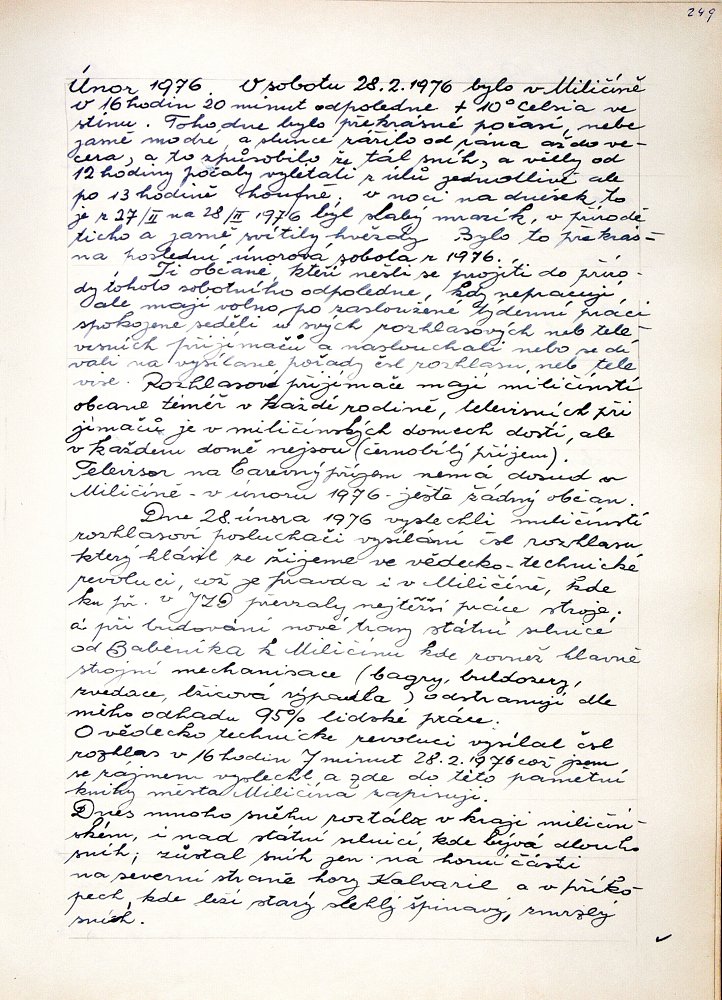 249
Únor 1976. V sobotu 28.2.1976 bylo v Miličíně
v 16 hodin 20 minut odpoledne + 10° Celsia ve
stínu. Toho dne bylo překrásné počasí, nebe
jasně modré, a slunce zářilo od rana až do ve-
čera, a to způsobilo že tál sníh, a včely od
12 hodiny počaly vylétati z úlů jednotlivě ale
po 13 hodině houfně; v noci na dnešek to
je z 27/II na 28/II 1976 byl slabý mrazík, v přírodě
ticho a jasně svítily hvězdy Bylo to překrás-
na poslední únorova sobota r 1976.
Ti občané, kteří nešli se projíti do příro-
dy tohoto sobotního odpoledne, kdy nepracují,
ale mají volno po zasloužené týdenní práci
spokojeně seděli u svých rozhlasových neb tele-
visních přijímačů a naslouchali nebo se dí
vali na vysílané pořady čsl rozhlasu, neb tele
vise. Rozhlasové přijímače mají miličínští
občané téměř v každé rodině, televisních při
jimačů je v miličínských domech dosti, ale
v každem domě nejsou (černobílý příjem).
Televisor na barevný příjem nemá dosud v
Miličíně - v únoru 1976 - ještě žádný občan.
Dne 28. února 1976 vyslechli miličínští
rozhlasoví posluchači vysílání čsl rozhlasu
který hlásil že žijeme ve vědecko-technické
revoluci, což je pravda i v Miličíně, kde
ku př. v JZD převzaly nejtěžší práce stroje,
a při budování nové trasy státní silnice
od Babeníka k Miličínu kde rovněž hlavně
strojní mechanisace (bagry, buldozery,
zvedače, lžícová rýpadla) odstranují dle
mého odhadu 95% lidské práce.
O vědecko technické revoluci vysílal čsl
rozhlas v 16 hodin 7 minut 28.2.1976 což jsem
se zájmem vyslechl a zde do této pamětní
knihy města Miličína zapisuji.
Dnes mnoho sněhu roztálo v kraji miličín-
ském, i nad státní silnicí, kde bývá dlouho
sníh; zůstal sníh jen na horní části
na severní straně hory Kalvarie a v příko-
pech, kde leží starý slehlý špinavý, zmrzlý
sníh.